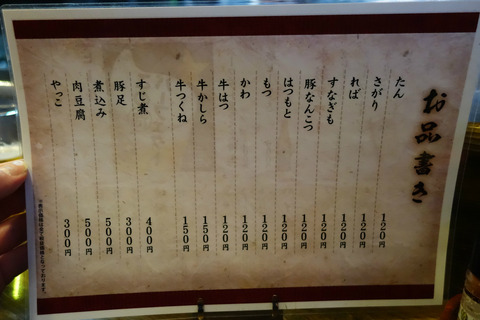 お品書き
たん 120円
さがり 120円
れば 120円
すなぎも 120円
豚なんこつ 120円
はつもと 120円
もつ 120円
かわ 120円
牛はつ 120円
牛かしら 150円
牛つくね 150円
すじ煮 400円
豚足 300円
煮込み 500円
肉豆腐 500円
やっこ 300円